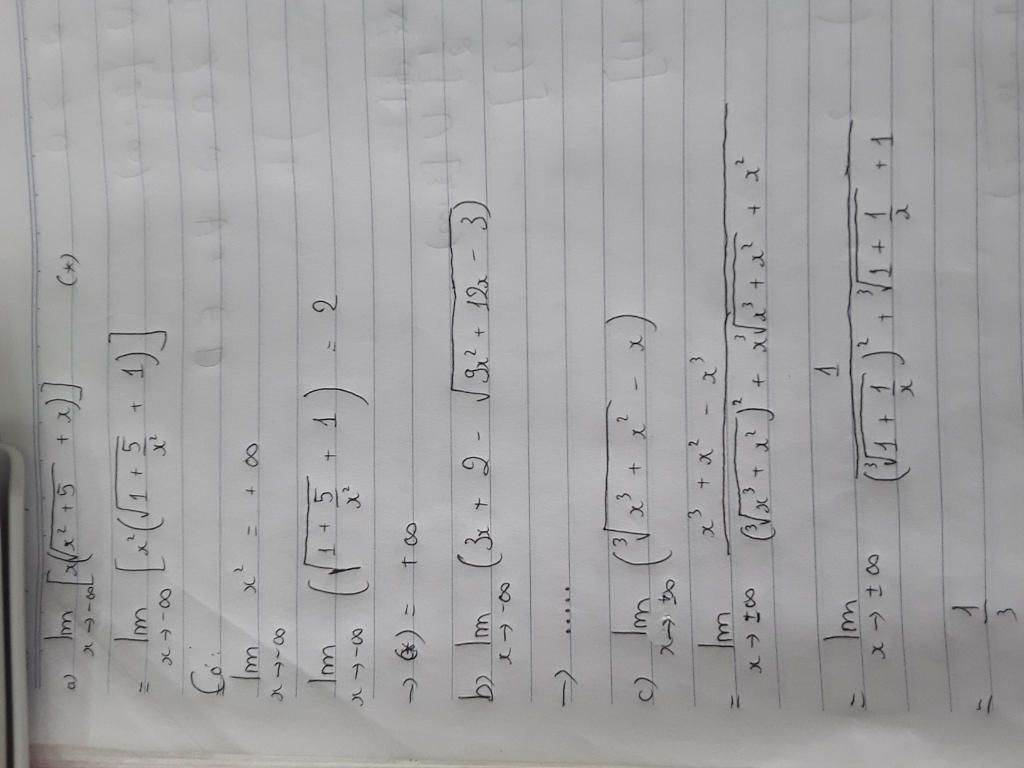 a) lim x→-∞ [x(√(x² + 5) + x)] (*)
= lim x→-∞ [x²(√(1 + 5/x²) + 1)]
Có:
lim x→-∞ x² = +∞
lim x→-∞ (√(1 + 5/x²) + 1) = 2
→ (*) = +∞
b) lim x→-∞ (3x + 2 - √(9x² + 12x - 3))
→ .....
c) lim x→±∞ (∛(x³ + x²) - x)
= lim x→±∞ (x³ + x² - x³)/((∛(x³ + x²))² + x∛(x³ + x²) + x²)
= lim x→±∞ 1/((∛(1 + 1/x))² + ∛(1 + 1/x) + 1)
= 1/3